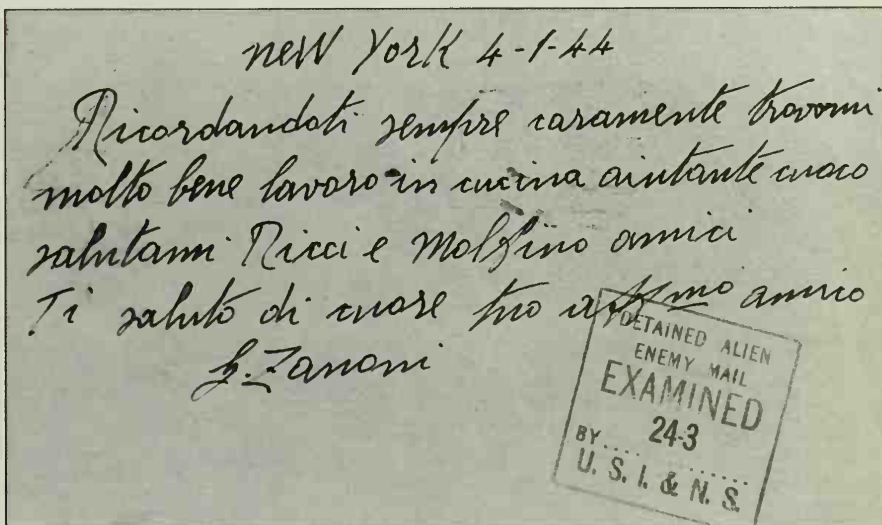 New York 4-1-44
Ricordandoti sempre caramente trovomi
molto bene lavoro in cucina aiutante cuoco
salutami Ricci e Molfino amici
Ti saluto di cuore tuo affmo amico
G. Zanoni
DETAINED ALIEN
ENEMY MAIL
EXAMINED
24-3
BY..............
U. S. I. & N. S.